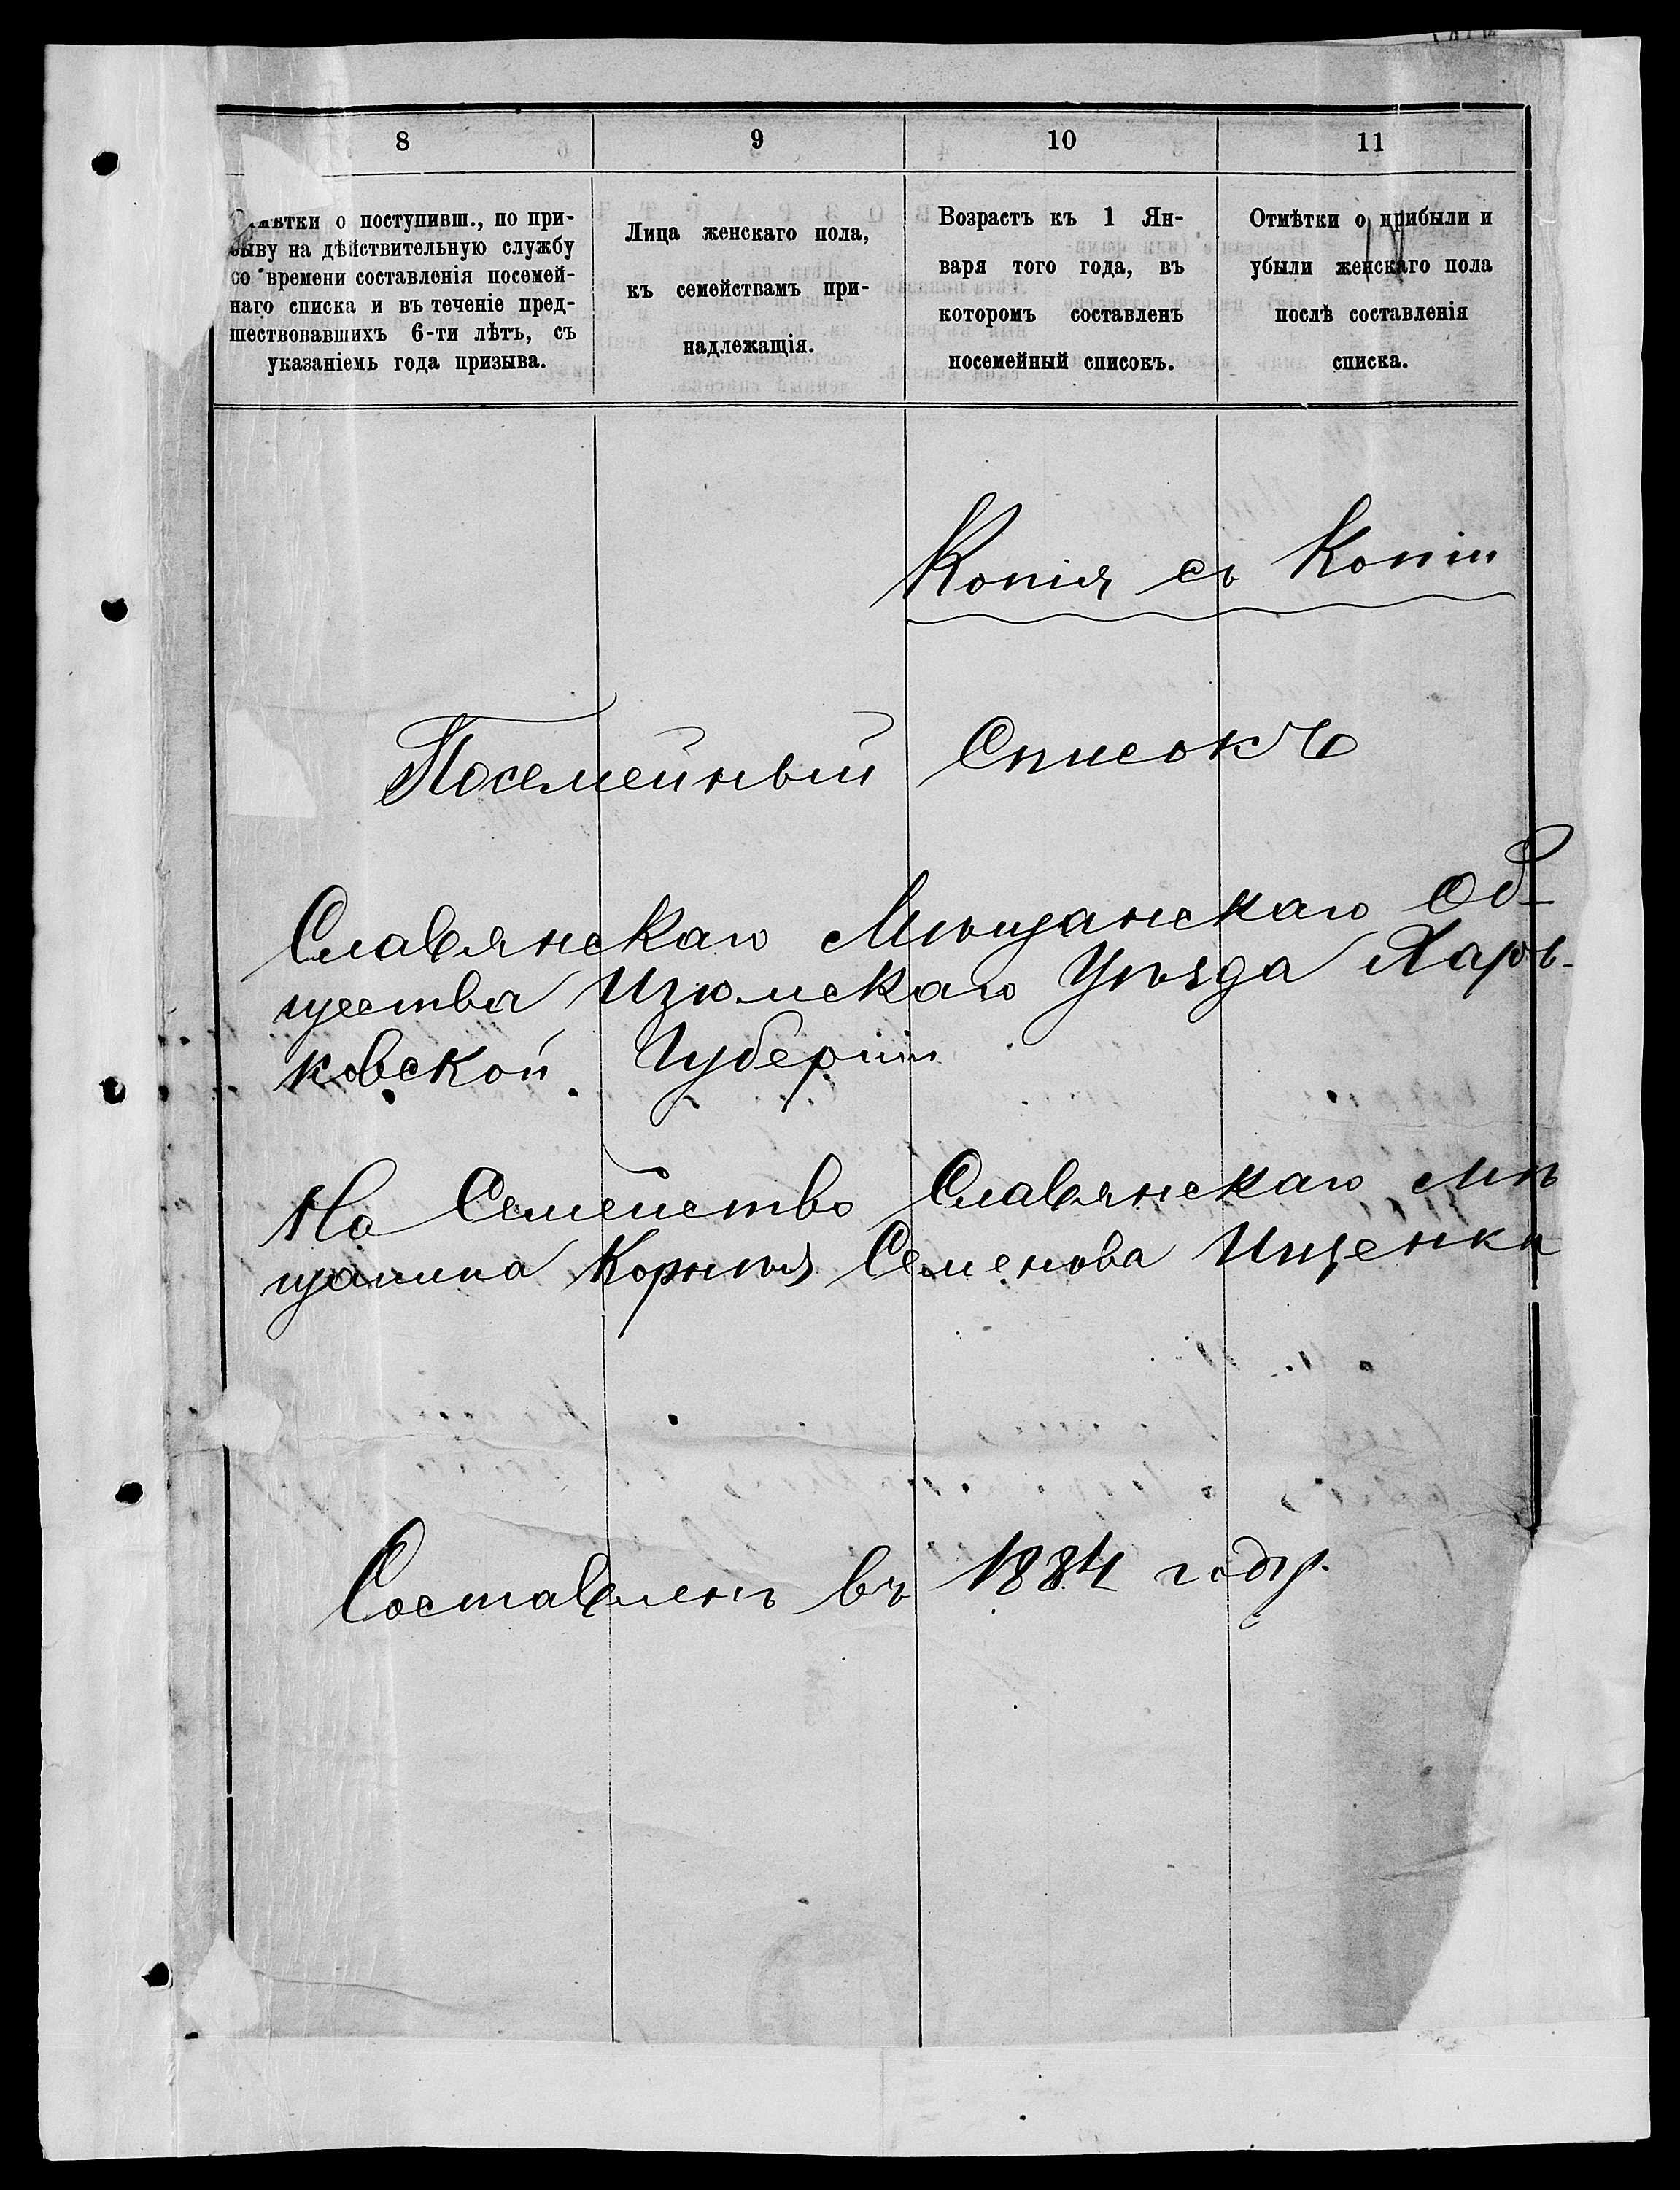 8 9 10 11
Отмѣтки о поступивш., по при-
зыву на дѣйствительную службу
со времени составленія посемей-
наго списка и въ теченіе пред-
шествовавшихъ 6-ти лѣтъ, съ
указаніемъ года призыва.
Лица женскаго пола,
къ семействамъ при-
надлежащія.
Возрастъ къ 1 Ян-
варя того года, въ
которомъ составленъ
посемейный списокъ.
Отмѣтки о прибыли и
убыли женскаго пола
послѣ составленія
списка.
Копія съ Копіи
Посемейный Списокъ
Славянскаго Мѣщанскаго Об-
щества Изюмскаго Уѣзда Харь-
ковской Губерніи
На Семейство Славянскаго Мѣ
щанина Корнѣя Семенова Ищенка
Составленъ въ 1884 году.